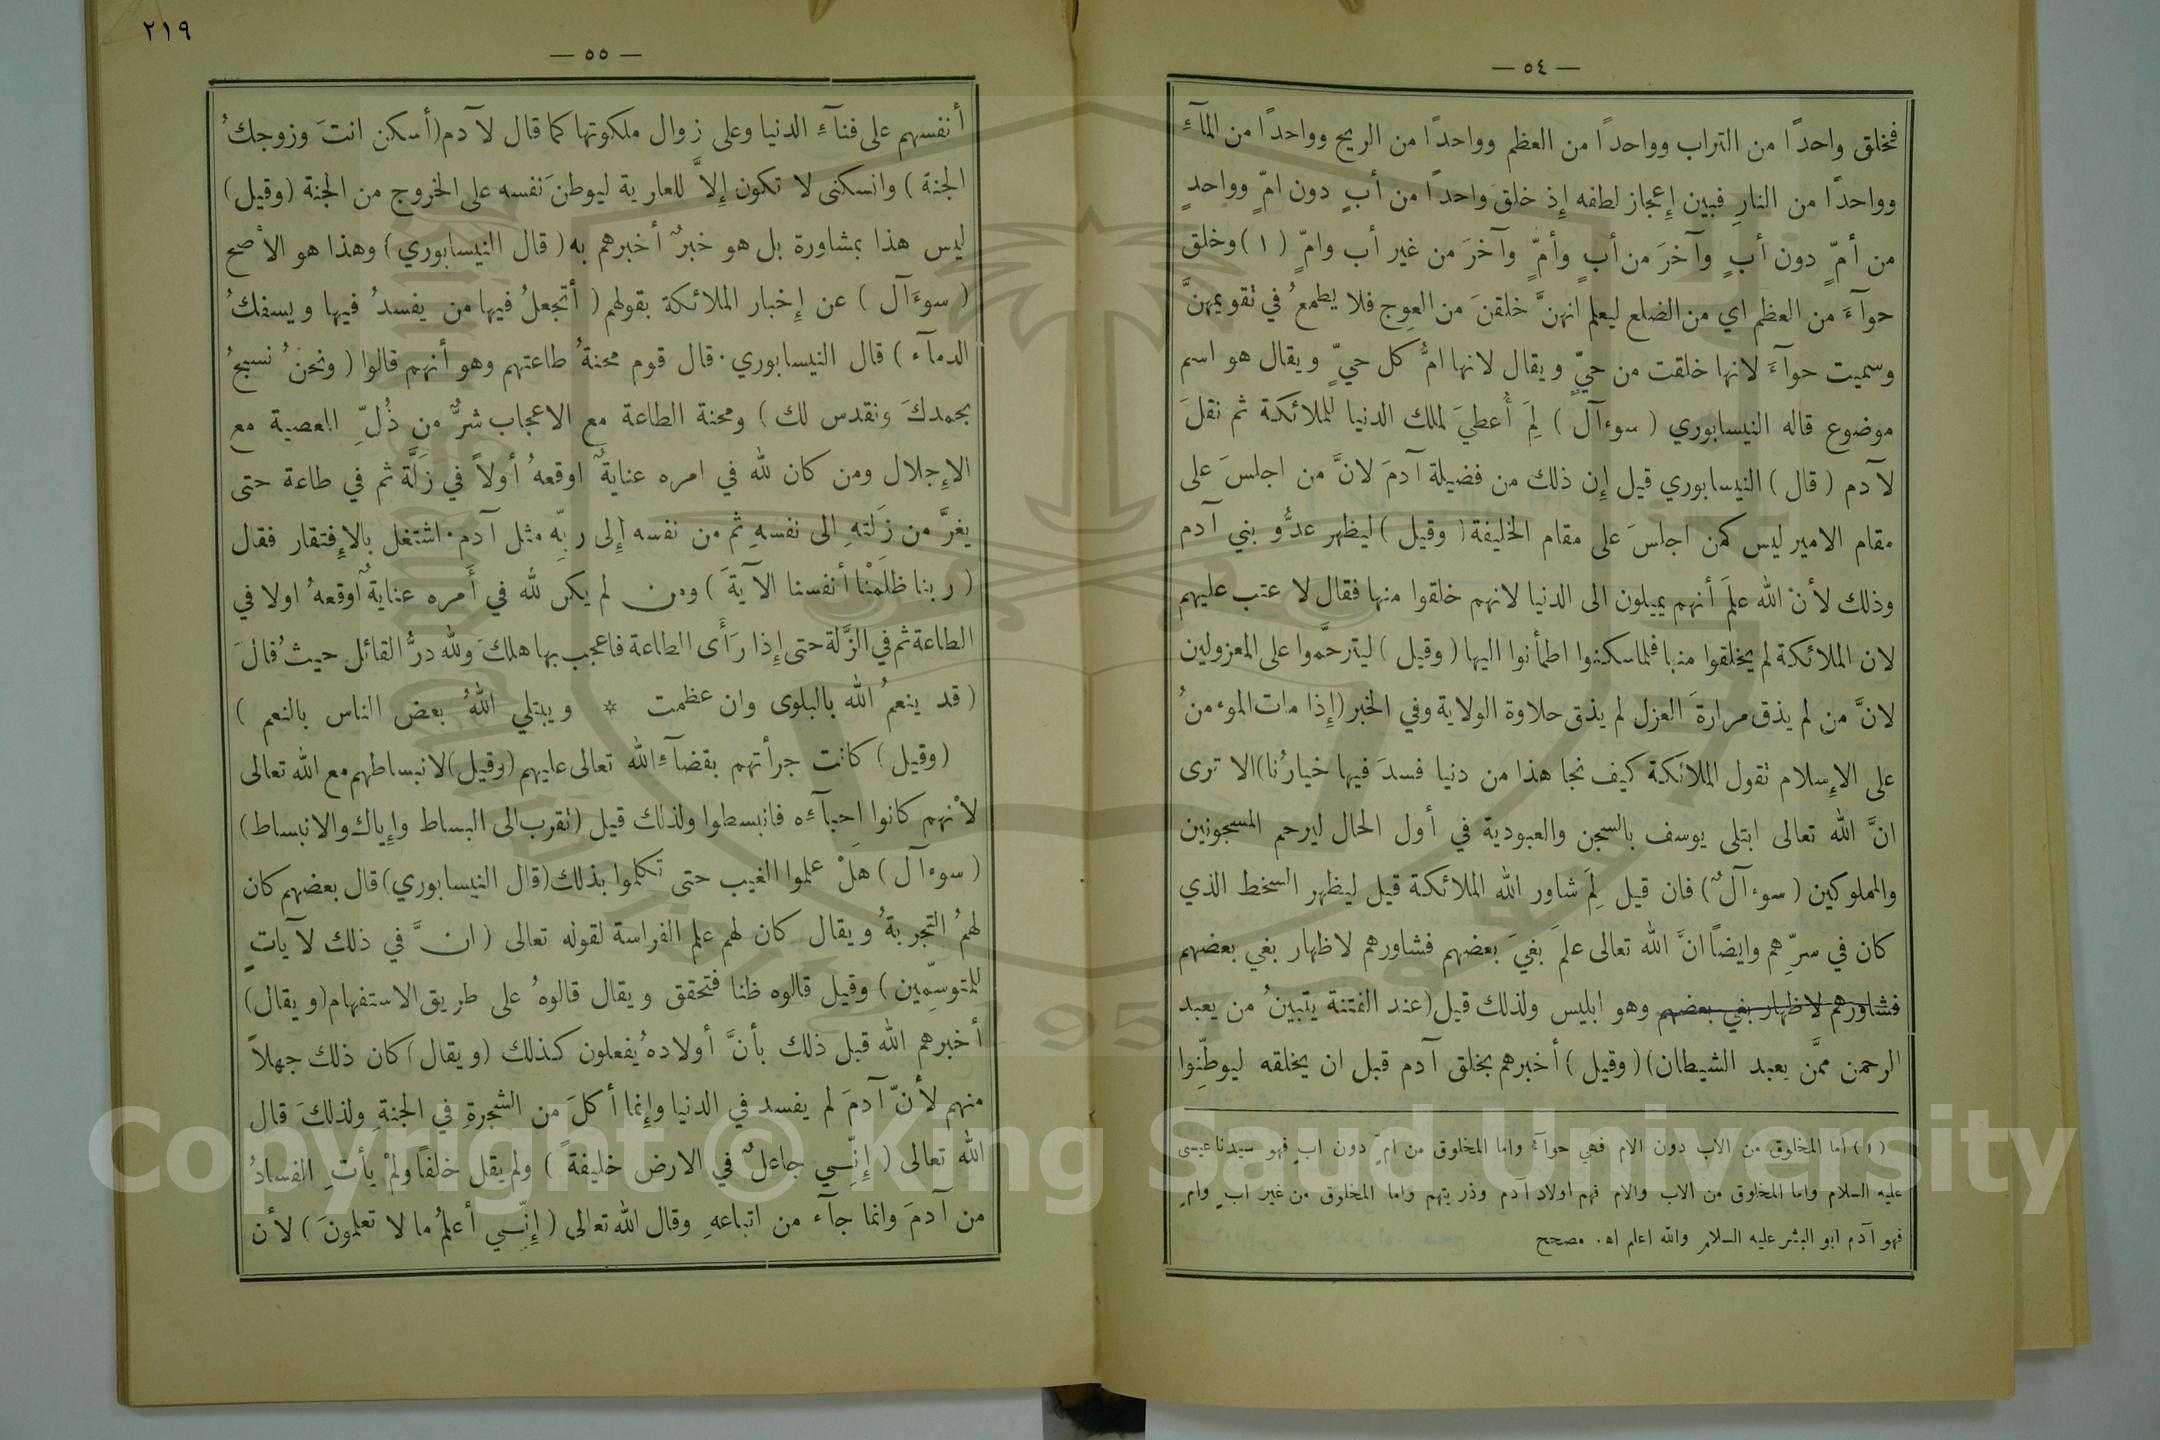 — ٥٤ —
فخلق واحدًا من التراب وواحدًا من العظم وواحدًا من الريح وواحدًا من المآءِ
وواحدًا من النارِ فبين إِعجاز لطفه إِذ خلقَ واحدًا من أبٍ دون امٍّ وواحدٍ
من أمٍّ دون أبٍ وآخرَ من أبٍ وأمٍّ وآخرَ من غير أب وامٍّ (١) وخلق
حوآءَ من العظم اي من الضلع ليعلم انهنَّ خلقنَ من العِوج فلا يطمعُ في تقويمهنَّ
وسميت حوآءَ لانها خلقت من حيٍّ ويقال لانها امُّ كل حيٍّ ويقال هو اسم
موضوع قاله النيسابوري ( سوءآل ) لِمَ أُعطيَ لملك الدنيا للملائكة ثم نقلَ
لآدم ( قال ) النيسابوري قيل إِن ذلك من فضيلة آدمَ لانَّ من اجلسَ على
مقام الامير ليس كمن اجلسَ على مقام الخليفة ( وقيل ) ليظهر عدُّو بني آدم
وذلك لأنْ الله علمَ أنهم يميلون الى الدنيا لانهم خلقوا منها فقال لا عتب عليهم
لان الملائكة لم يخلقوا منها فلما سكنوا اطمأنوا اليها ( وقيل ) ليترحَّموا على المعزولين
لانَّ من لم يذق مرارةَ العزل لم يذق حلاوة الولاية وفي الخبر (إِذا مات الموءمنُ
على الإِسلام تقول الملائكة كيف نجا هذا من دنيا فسدَ فيها خيارُنا) الا ترى
انَّ الله تعالى ابتلى يوسف بالسجن والعبودية في أول الحال ليرحم المسجونين
والمملوكين ( سوءآلٌ ) فان قيل لِمَ شاور الله الملائكة قيل ليظهر السخط الذي
كان في سرّهم وايضاً انَّ الله تعالى علمَ بغيَ بعضهم فشاورهم لاظهار بغي بعضهم
فشاورهم لاظهار بغي بعضهم وهو ابليس ولذلك قيل (عند الفتنة يتبينُ من يعبد
الرحمن ممَّن يعبد الشيطان) ( وقيل ) أخبرهم بخلق آدم قبل ان يخلقه ليوطِّنوا
(١) اما المخلوق من الاب دون الام فهي حوآء واما المخلوق من امٍ دون ابٍ فهو سيدنا عيسى
عليه السلام واما المخلوق من الاب والام فهم اولاد آدم وذريتهم واما المخلوق من غير ابٍ وامٍ
فهو آدم ابو البشر عليه السلام والله اعلم اه. مصحح
٢١٩
— ٥٥ —
أنفسهم على فنآءِ الدنيا وعلى زوال ملكوتها كما قال لآدم (أسكن انتَ وزوجكُ
الجنة ) وانسكنى لا تكون إِلاَّ للعارية ليوطنَ نفسه على الخروج من الجنة (وقيل)
ليس هذا بمشاورة بل هو خبرٌ أخبرهم به ( قال النيسابوري) وهذا هو الأصح
( سوءَآل ) عن إِخبار الملائكة بقولهم ( أتجعلُ فيها من يفسدُ فيها ويسفكُ
الدمآء ) قال النيسابوري. قال قوم محنةُ طاعتهم وهو أنهم قالوا ( ونحنُ نسبحُ
بحمدكَ ونقدس لك ) ومحنة الطاعة مع الاعجاب شرٌّ من ذُلِّ المعصية مع
الإِجلال ومن كان لله في امره عنايةٌ اوقعهُ أولاً في زَلَّة ثم في طاعة حتى
يغرَّ من زَلتهِ الى نفسهِ ثم من نفسه إِلى ربّه مثل آدم. اشتغل بالإِفتقار فقال
( ربنا ظلمْنا أنفسنا الآيةَ ) ومن لم يكن لله في أَمره عنايةٌ أوقعهُ اولا في
الطاعة ثم في الزَّلة حتى إِذا رَأَى الطاعة فاعجب بها هلكَ ولله درُّ القائل حيثُ قالَ
( قد ينعمُ الله بالبلوى وان عظمت * ويبتلي اللهُ بعض الناس بالنعم )
(وقيل) كانت جرأتهم بقضآءِ الله تعالى عليهم (وقيل) لانبساطهم مع الله تعالى
لأنهم كانوا احِبآءه فانبسطوا ولذلك قيل (تقرب الى البساط وإِياك والانبساط)
( سوءآل ) هلْ علموا الغيب حتى تكلموا بذلك (قال النيسابوري) قال بعضهم كان
لهمُ التجربةُ ويقال كان لهم علم الفراسة لقوله تعالى ( انَّ في ذلك لآياتٍ
للمتوسِّمين ) وقيل قالوه ظنا فتحقق ويقال قالوهُ على طريق الاستفهام (ويقال)
أخبرهم الله قبل ذلك بأنَّ أولادهُ يفعلون كذلك (ويقال) كان ذلك جهلاً
منهم لأنّ آدمَ لم يفسد في الدنيا وإِنما أكلَ من الشجرةِ في الجنةِ ولذلكَ قال
الله تعالى ( إِنِّي جاعلٌ في الارض خليفةً ) ولم يقل خلفاً ولمْ يأتِ الفسادُ
من آدمَ وانما جآء من اتباعهِ وقال الله تعالى ( إِنِّي أعلمُ ما لا تعلمونَ ) لأن
Copyright © King Saud University